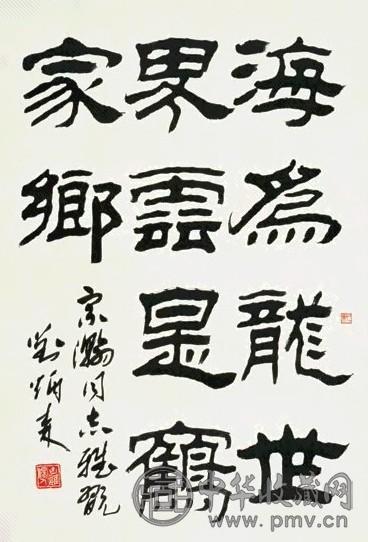 海為龍世
界雲是鶴
家鄉
宗瀚同志雅翫
劉炳森
中华收藏网
www.pmv.cn